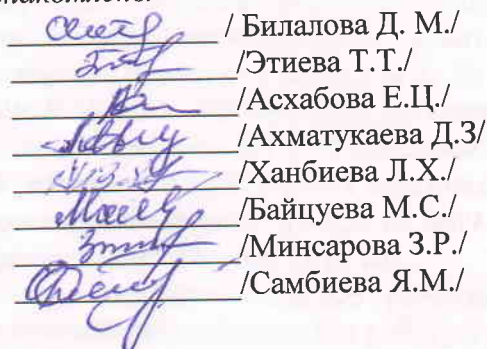 / Билалова Д. М./
/Этиева Т.Т./
/Асхабова Е.Ц./
/Ахматукаева Д.З/
/Ханбиева Л.Х./
/Байцуева М.С./
/Минсарова З.Р./
/Самбиева Я.М./